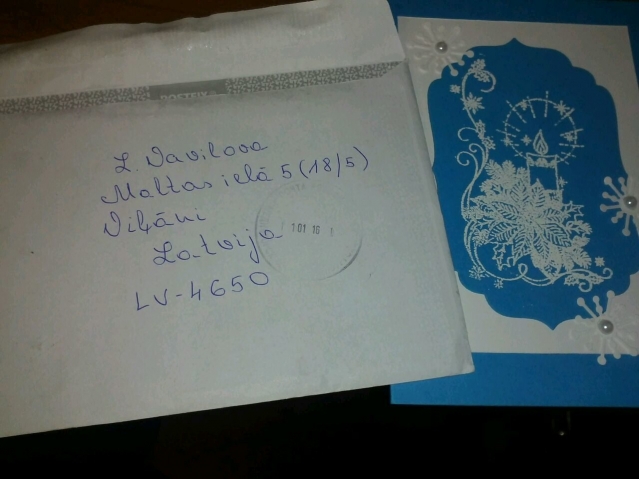 L. Vavilova
Maltas ielā 5 (18/5)
Viļāni
Latvija
LV-4650
101 16 1